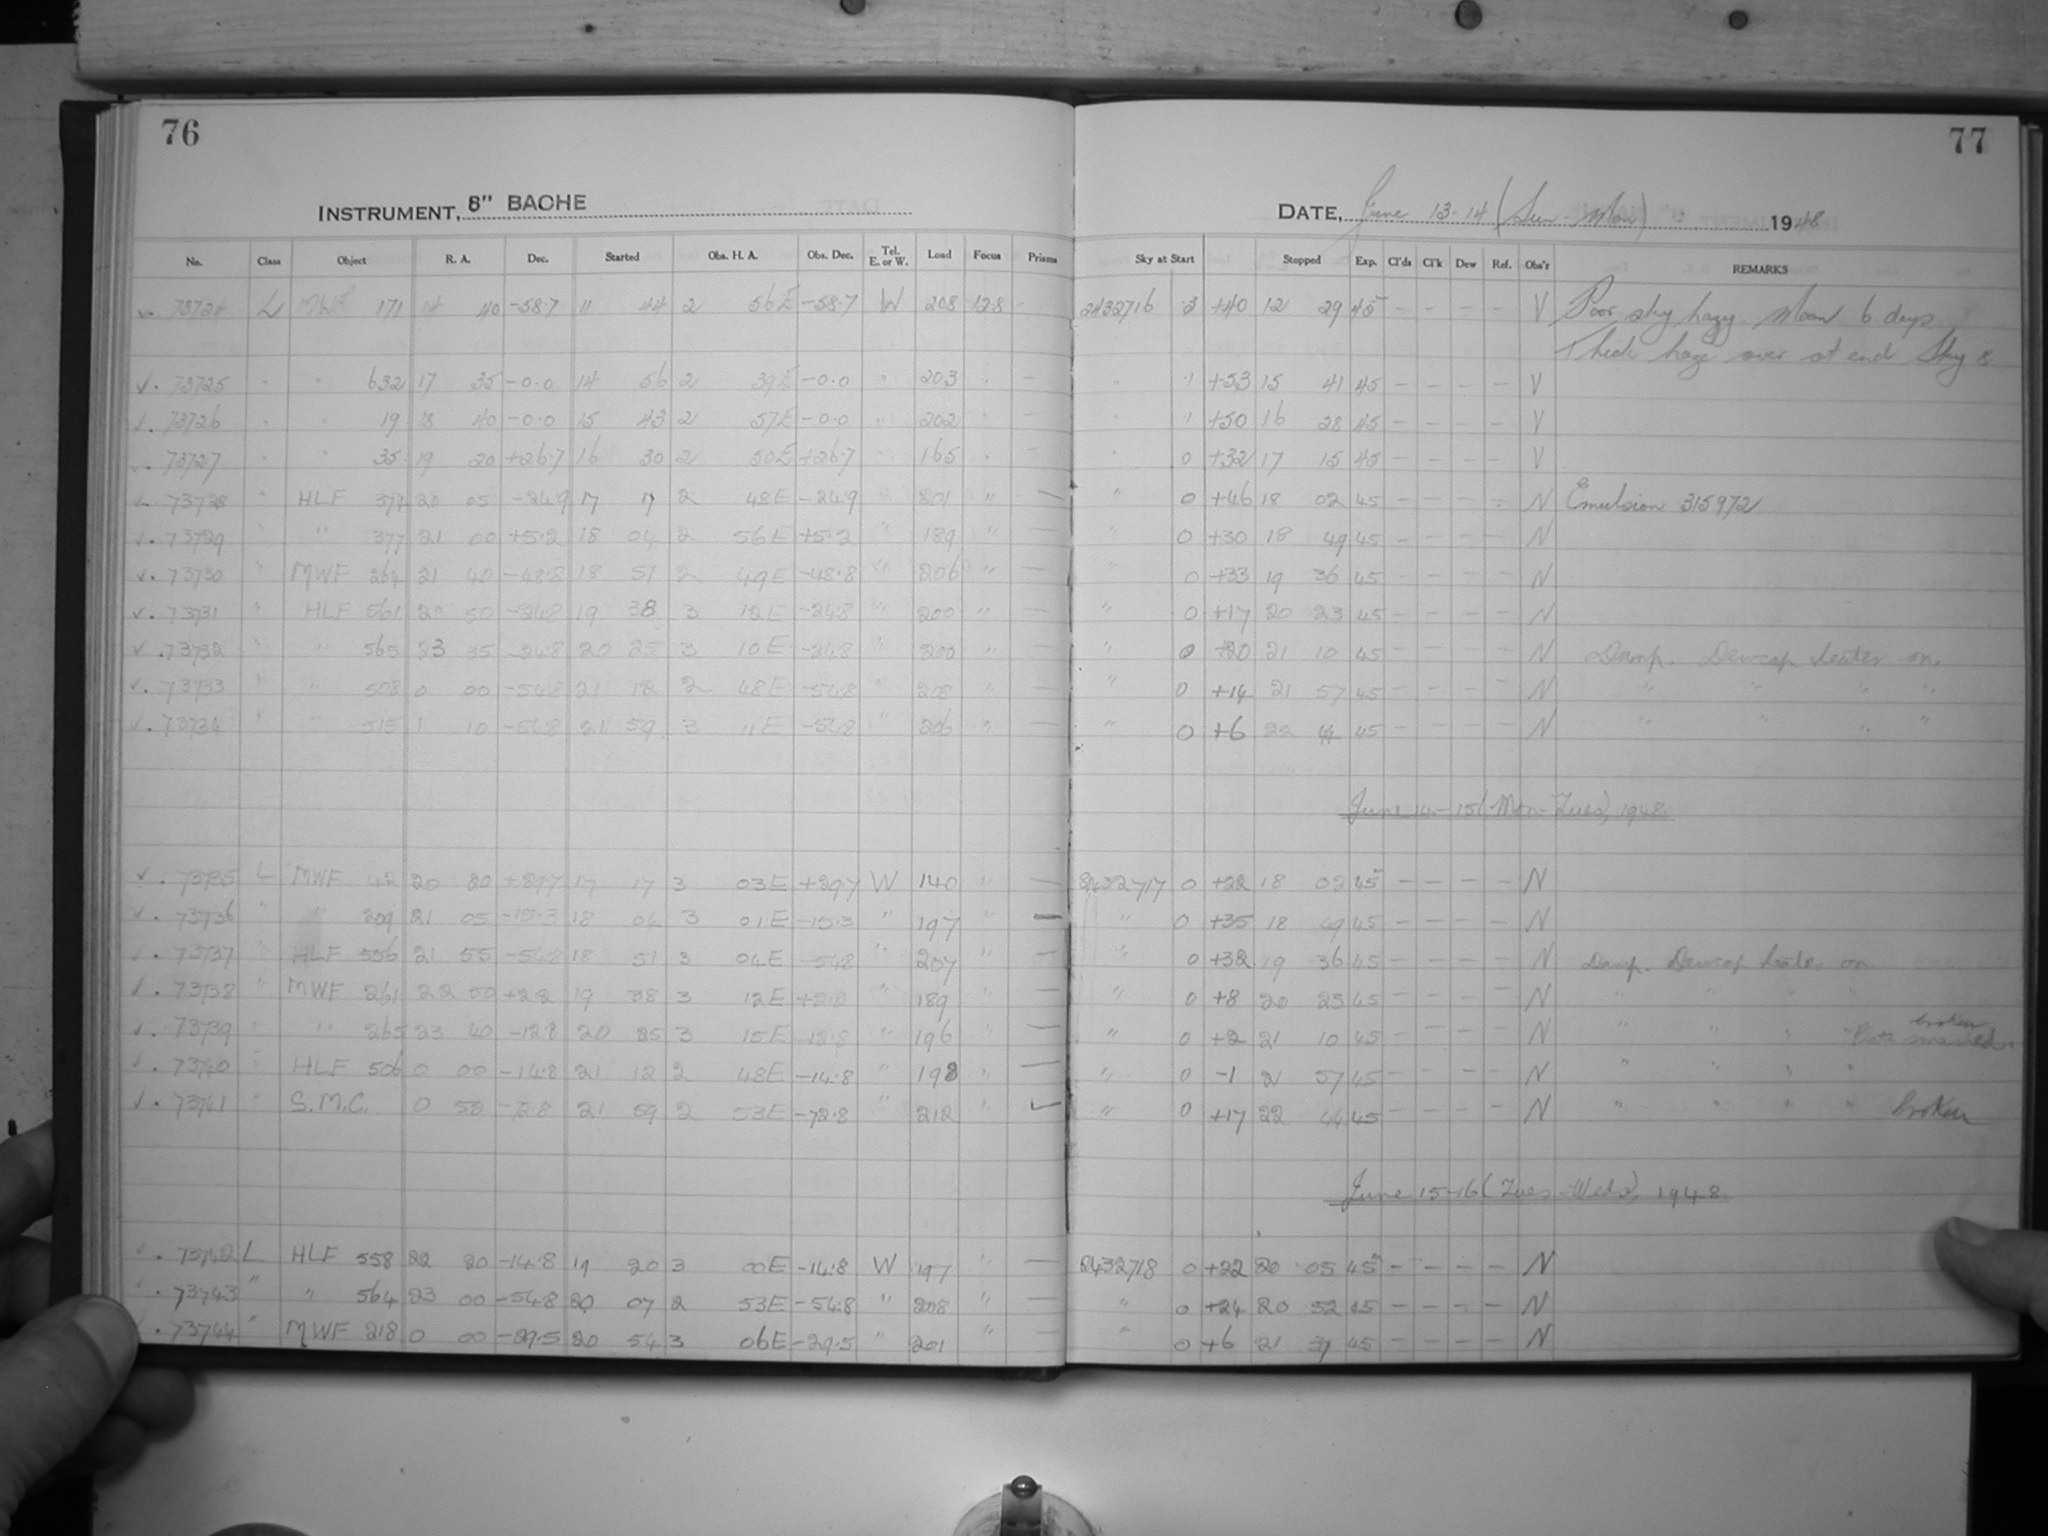 76
77
INSTRUMENT, 8" BACHE
DATE, June 13-14 (Sun-Mon) 1948
No. Class Object R. A. Dec. Started Obs. H. A. Obs. Dec. Tel. E. or W. Load Focus Prisms Sky at Start Stopped Exp. Cl'ds Cl'k Dew Ref. Obs'r REMARKS
73724 L MWF 171 14 40 -58.7 11 44 2 56E -58.7 W 208 12.8 - 2432716 3 +40 12 29 45 - - - - V Poor sky hazy. Moon 6 days
Thick haze over at end Sky 8
✓. 73725 " " 632 17 35 -0.0 14 56 2 39E -0.0 " 203 " - " 1 +53 15 41 45 - - - - V
✓. 73726 " " 19 18 40 -0.0 15 43 2 57E -0.0 " 202 " - " 1 +50 16 28 45 - - - - V
73727 " " 35 19 20 +26.7 16 30 2 50E +26.7 165 " - " 0 +32 17 15 45 - - - - V
73728 " HLF 20 05 -24.9 17 17 2 48E -24.9 " 201 " - " 0 +46 18 02 45 - - - - N Emulsion 315972
✓. 73729 " " 377 21 00 +5.2 18 04 2 56E +5.2 " 189 " - " 0 +30 18 49 45 - - - - N
✓. 73730 " MWF 264 21 40 -48.8 18 51 2 49E -48.8 " 206 " - " 0 +33 19 36 45 - - - - N
✓. 73731 " HLF 561 50 -24.8 19 38 3 12E -24.8 " 200 " - " 0 +17 20 23 45 - - - - N
✓. 73732 " " 565 23 35 -24.8 20 25 3 10E -24.8 " 200 " - " 0 +20 21 10 45 - - - - N Damp. Dewcap heater on.
✓. 73733 " " 508 0 00 -54.8 21 12 2 48E -54.8 " 208 " - " 0 +14 21 57 45 - - - - N " " " "
✓. 73734 " " 515 1 10 -54.8 21 59 3 11E -54.8 " 206 " - " 0 +6 22 44 45 - - - - N " " " "
June 14-15 (Mon-Tues) 1948.
✓. 73735 L MWF 42 20 20 +29.7 17 17 3 03E +29.7 W 140 " - 2432717 0 +22 18 02 45 - - - - N
✓. 73736 " " 209 21 05 -15.3 18 04 3 01E -15.3 " 197 " - " 0 +35 18 49 45 - - - - N
✓. 73737 " HLF 556 21 55 -54.8 18 51 3 04E -54.8 " 207 " - " 0 +32 19 36 45 - - - - N Damp. Dewcap heater on
✓. 73738 " MWF 261 22 50 19 38 3 12E " 189 " - " 0 +8 20 23 45 - - - - N " " " "
✓. 73739 " " 265 23 40 -12.8 20 25 3 15E -12.8 " 196 " - " 0 +2 21 10 45 - - - - N " " " " broken
✓. 73740 " HLF 506 0 00 -14.8 21 12 2 48E -14.8 " 198 " - " 0 -1 21 57 45 - - - - N " " " "
✓. 73741 " S.M.C. 0 52 -72.8 21 59 2 53E -72.8 " 212 " - " 0 +17 22 44 45 - - - - N " " " " broken
June 15-16 (Tues-Weds), 1948.
✓. 73742 L HLF 558 22 20 -14.8 19 20 3 00E -14.8 W 197 " - 2432718 0 +22 20 05 45 - - - - N
73743 " " 564 23 00 -54.8 20 07 2 53E -54.8 " 208 " - " 0 +24 20 52 45 - - - - N
73744 " MWF 218 0 00 -29.5 20 54 3 06E -29.5 " 201 " - " 0 +6 21 39 45 - - - - N